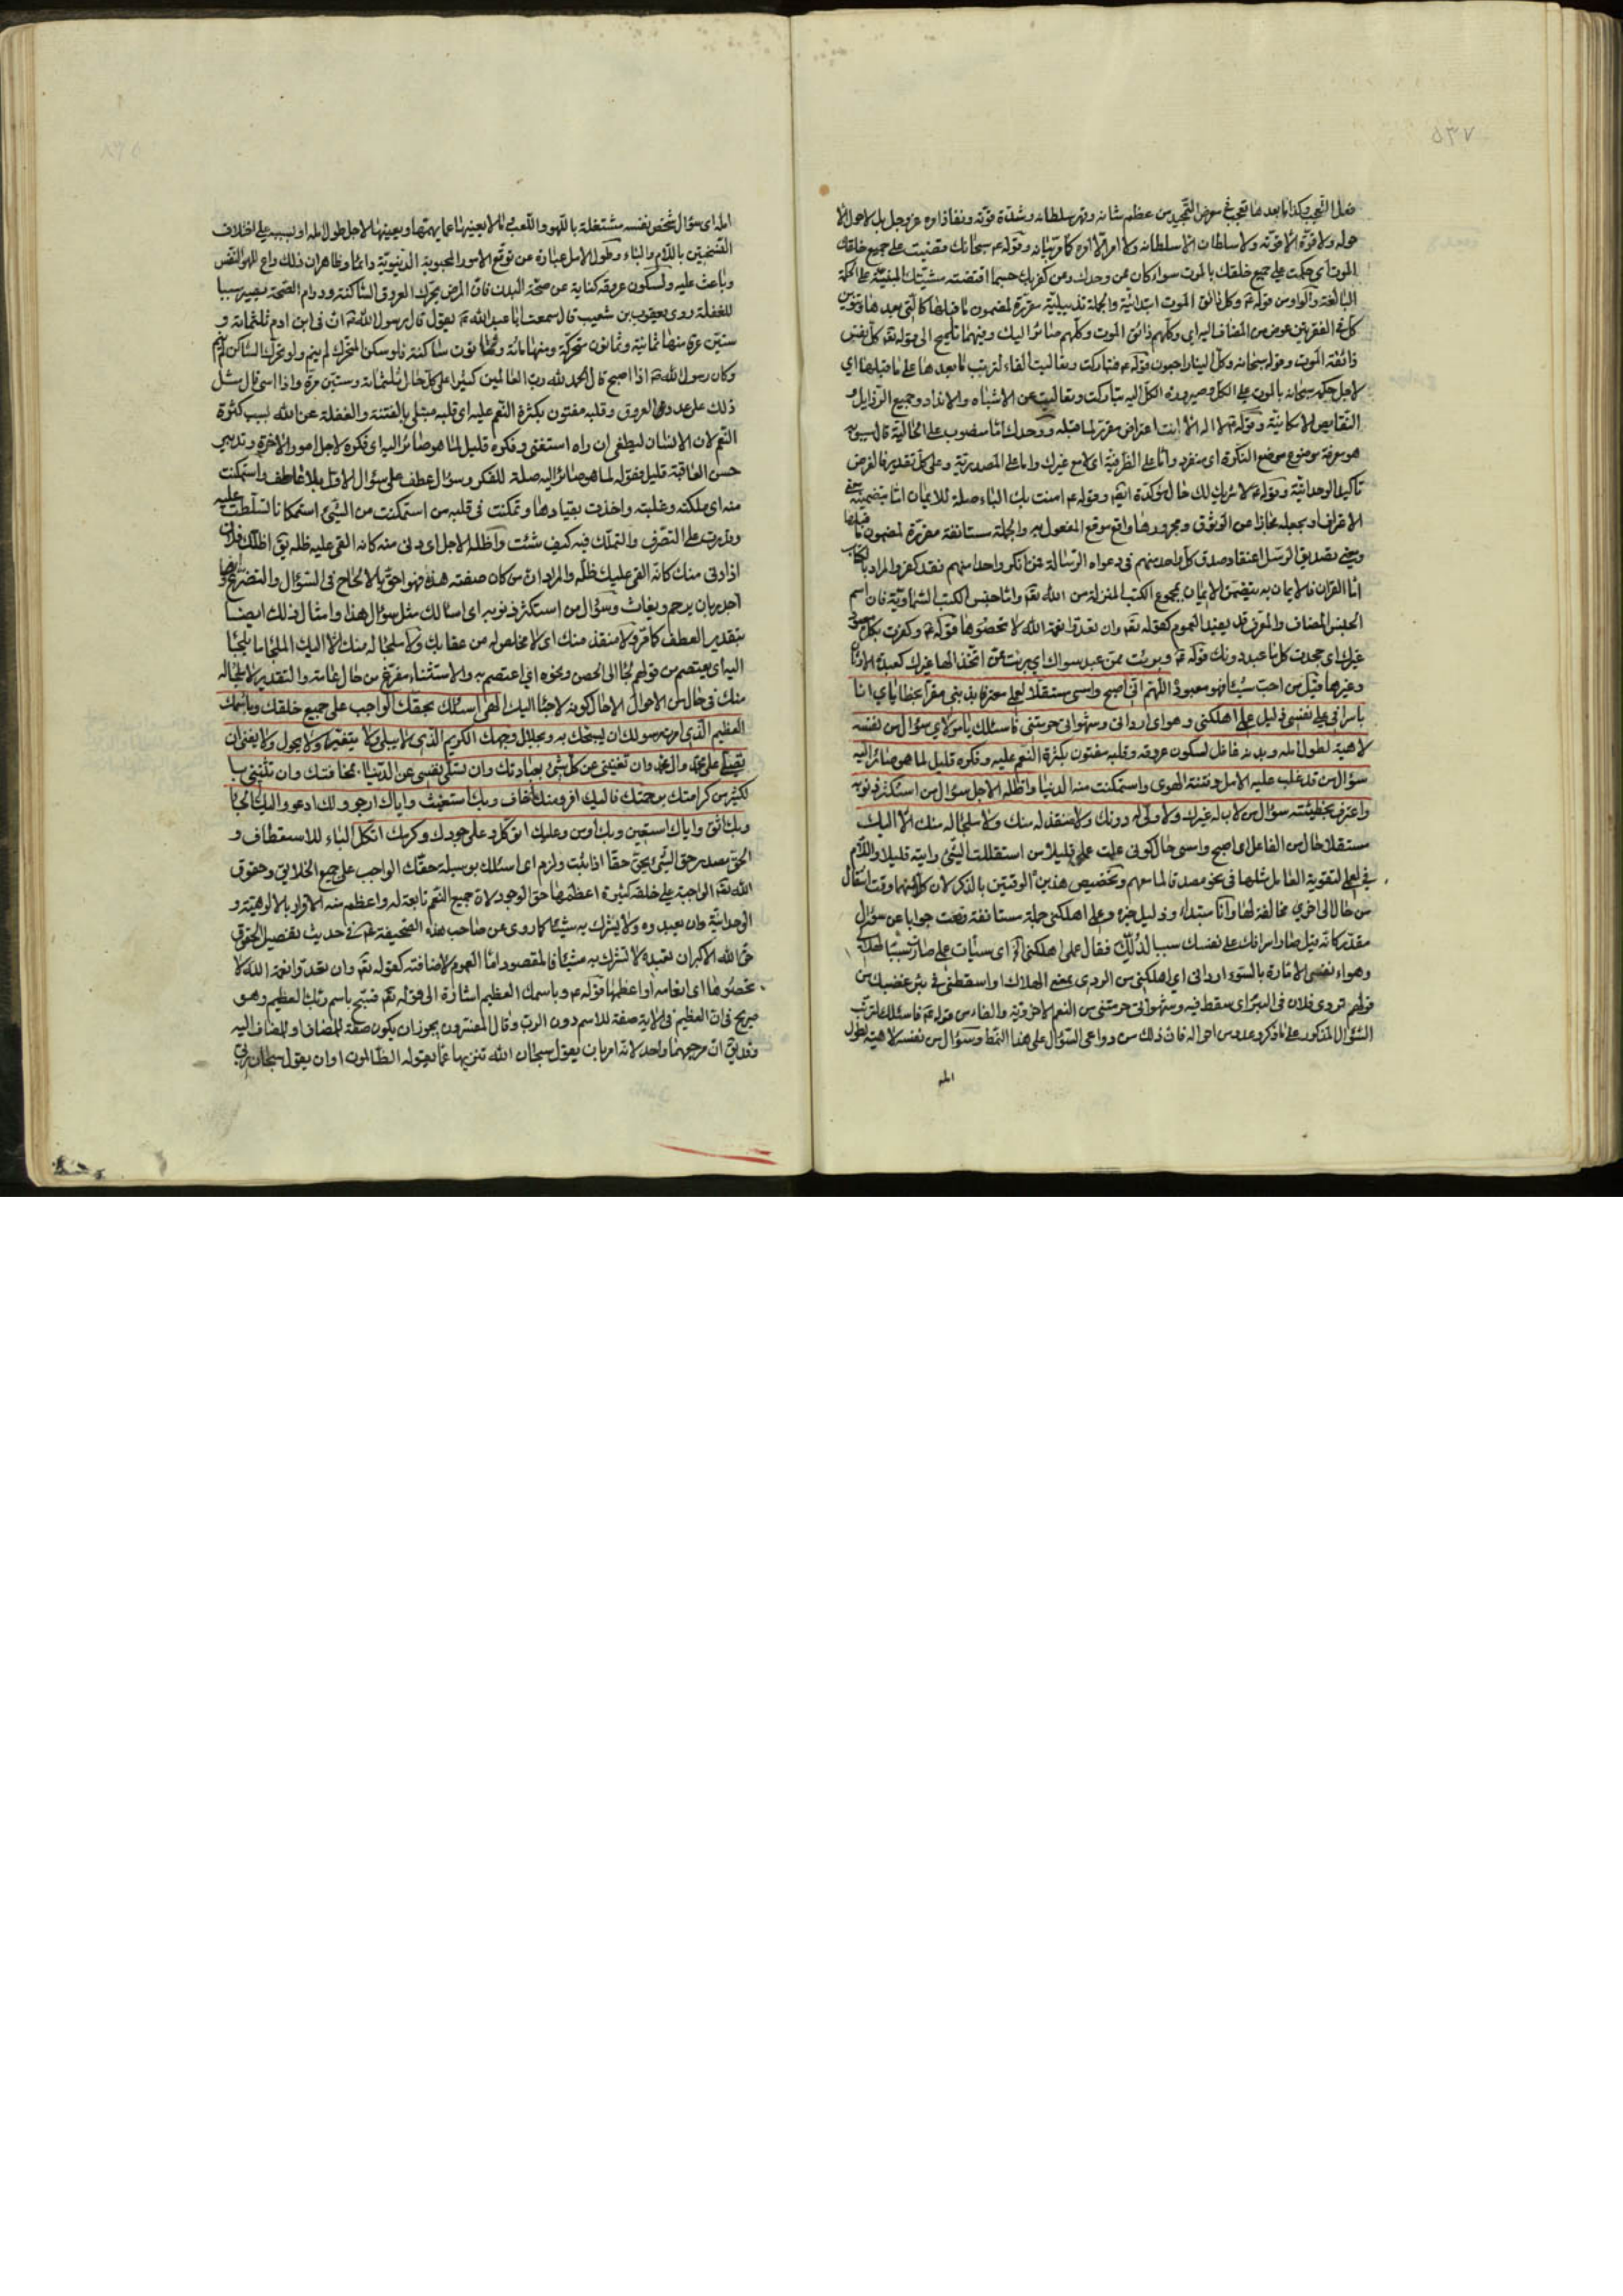 ٥٣٧
فعل التعجب وكذا ما بعدها تعجب في معرض التمجيد من عظم شانه وقهر سلطانه وشدّة قوّته ونفاذ امره عزوجل بل لا حول الّا
حوله ولا قوّة الّا قوّته ولا سلطان الّا سلطانه ولا امر الّا امره كما مرّ بيانه وقوله ع سبحانك وقضيت على جميع خلقك
الموت اي حكمت على جميع خلقك بالموت سواء كان ممن وحدك ومن كفر بك حسبما اقتضته مشيّتك المبنيّة على الحكمة
البالغة والواو من قوله ع وكل ذائق الموت ابتدائيّة والجملة تذييليّة مقررة لمضمون ما قبلها كالتي بعدها وتنوين
كل في الفقرتين عوض من المضاف اليه اي وكلهم ذائق الموت وكلهم صائر اليك وفيهما تلميح الى قوله تعالى كل نفس
ذائقة الموت وقوله سبحانه وكل الينا راجعون قوله ع فتباركت وتعاليت الفاء لترتيب ما بعدها على ما قبلها اي
لاجل حكمه سبحانه بالموت على الكل وصيرورة الكل اليه تباركت وتعاليت عن الاشباه والانداد وجميع الرذايل و
النقايص الامكانيّة وقوله ع لا اله الّا انت اعتراض مقرر لما قبله ووحدك امّا منصوب على الحالية قال سيبويه
هو معرفة موضوع موضع النكرة اي منفرد وامّا على الظرفيّة اي لا مع غيرك واما على المصدريّة وعلى كل تقدير فالغرض
تأكيد الوحدانيّة وقوله ع لا شريك لك حال مؤكّدة ايضا وقوله ع امنت بك الباء صلة للايمان امّا بتضمينه معنى
الاعتراف او بجعله مجازا عن الوثوق ومجرورها واقع موقع المفعول به والجملة مستانفة مقررة لمضمون ما قبلها
ويعني بصديق الرسل اعتقاد صدق كل واحد منهم في دعواه الرسالة فمن انكر واحدا منهم فقد كفر والمراد بالكتاب
امّا القران فالايمان به يتضمن الايمان بمجموع الكتب المنزلة من الله تعالى وامّا جنس الكتب السماويّة فان اسم
الجنس المضاف والمعرف قد يفيد العموم كقوله تعالى وان تعدوا نعمة الله لا تحصوها قوله ع وكفرت بكل معبود
غيرك اي جحدت كل ما عبد دونك قوله ع وبرئت ممن عبد سواك اي برئت ممن اتخذ الها غيرك كعبدة الاوثان
وغيرها قيل من احب شيئا فهو معبوده اللهم اني اصبح وامسي مستقلا لعملي معترفا بذنبي مقرا بخطاياي انا
باسرافي على نفسي ذليل عملي اهلكني وهواي ارداني وشهواتي حرمتني فاسئلك يا مولاي سؤال من نفسه
لاهية لطول امله وبدنه غافل لسكون عروقه وقلبه مفتون بكثرة النعم عليه وفكره قليل لما هو صائر اليه
سؤال من قد غلب عليه الامل وفتنه الهوى واستمكنت منه الدنيا واظله الاجل سؤال من استكثر ذنوبه
واعترف بخطيئته سؤال من لا رب له غيرك ولا ولي له دونك ولا منقذ له منك ولا ملجا له منك الّا اليك
مستقلا حال من الفاعل اي اصبح وامسي حال كوني علمت عملي قليلا من استقللت الشيء رايته قليلا واللام
في لعملي لتقوية العامل مثلها في نحو مصدقا لما معهم وتخصيص هذين الوقتين بالذكر لان كلا منهما وقت انتقال
من حال الى اخرى مخالفة لها وانا مبتداء وذليل خبره وعملي اهلكني جملة مستانفة وقعت جوابا عن سؤال
مقدر كانه قيل ماذا اسرافك على نفسك سببا لذلك فقال عملي اهلكني اي سيّات عملي صارت سببا لهلاكي
وهواء نفسي الامّارة بالسوء ارداني اي اهلكني من الردى بمعنى الهلاك او اسقطني في بئر غضبك من
قولهم تردى فلان في البئر اي سقط فيه وشهواتي حرمتني من النعم الاخرويّة والفاء من قوله ع فاسئلك لترتب
السؤال المذكور على ما ذكره وعده من احواله فان ذلك من دواعي السؤال على هذا النمط وسؤال من نفسه لاهية لطول
امله
امله اي سؤال شخص نفسه مشتغلة باللهو واللعب بما لا يعينها عما يهمها ويعينها لاجل طول امله او بسببه على اختلاف
النسختين باللام والباء وطول الامل عبارة عن توقع الامور المحبوبة الدنيويّة دائما وظاهر ان ذلك داع للهو النفس
وباعث عليه ولسكون عروقه كناية عن صحّة البدن فان المرض يحرك العروق الساكنة ودوام الصحّة يصير سببا
للغفلة روى يعقوب بن شعيب قال سمعت ابا عبد الله ع يقول قال رسول الله ص ان في ابن ادم ثلثمائة و
ستين عرقا منها مائة وثمانون متحركة ومنها مائة وثمانون ساكنة فلو سكن المتحرك لم ينم ولو تحرك الساكن لم ينم
وكان رسول الله ص اذا اصبح قال الحمد لله رب العالمين كثيرا على كل حال ثلثمائة وستين مرة واذا امسى قال مثل
ذلك على عدد العروق وقلبه مفتون بكثرة النعم عليه اي قلبه مبتلى بالفتنة والغفلة عن الله بسبب كثرة
النعم لان الانسان ليطغى ان راه استغنى وفكره قليل لما هو صائر اليه اي فكره لاجل امور الاخرة وتدبير
حسن العاقبة قليل فقوله لما هو صائر اليه صلة للفكر وسؤال عطف على سؤال الاول بلا عاطف واستمكنت
منه اي ملكته وغلبته واخذت بقيادها وتمكنت في قلبه من استمكنت من الشيء استمكانا تسلطت عليه
وقدرت على التصرف والتملك فيه كيف شئت واظله الاجل اي دنى منه كانه القى عليه ظله يقال اظلك فلان
اذا دنى منك كانه القى عليك ظله والمراد ان من كان صفته هذه فهو احق بالالحاح في السؤال والتضرع وايضا
اجدر بان يرحم ويغاث وسؤال من استكثر ذنوبه اي اسالك مثل سؤال هذا وامثال ذلك ايضا
بتقدير العطف كما مر ولا منقذ منك اي لا مخلص له من عقابك ولا ملجا له منك الّا اليك الملجا ما يلتجا
اليه اي يعتصم من قولهم لجا الى الحصن ونحوه اي اعتصم به والاستثناء مفرغ من حال عامة والتقدير لا ملجا له
منك في حال من الاحوال الّا حال كونه لاجئا اليك الهي اسئلك بحقك الواجب على جميع خلقك وباسمك
العظيم الذي امرت رسولك ان يسبحك به وبجلال وجهك الكريم الذي لا يبلى ولا يتغير ولا يحول ولا يفنى ان
تصلي على محمد وال محمد وان تغنيني عن كل شيء بعبادتك وان تسلي نفسي عن الدنيا بمخافتك وان تثنيني بـا
لكثير من كرامتك برحمتك فاليك افر ومنك اخاف وبك استغيث واياك ارجو ولك ادعو واليك الجا
وبك اثق واياك استعين وبك اومن وعليك اتوكل وعلى جودك وكرمك اتكل الباء للاستعطاف و
الحق مصدر حق الشيء يحق حقا اذا ثبت ولزم اي اسئلك بوسيلة حقك الواجب على جميع الخلايق وحقوق
الله تعالى الواجبة على خلقه كثيرة اعظمها حق الوجود لان جميع النعم تابعة له واعظم منه الاقرار بالالوهيّة و
الوحدانيّة وان يعبدوه ولا يشرك به شيئا كما روي عن صاحب هذه الصحيفة ع في حديث تفصيل الحقوق
حق الله الاكبر ان تعبده لا تشرك به شيئا فالمقصود امّا العموم لاضافته كقوله تعالى وان تعدوا نعمة الله لا
تحصوها اي انعامه او اعظمها قوله ع وباسمك العظيم اشارة الى قوله تعالى فسبح باسم ربك العظيم وهو
صريح في ان العظيم في الاية صفة للاسم دون الرب وقال المفسرون يجوز ان يكون صفة للمضاف او للمضاف اليه
وقد يق ان مرجعهما واحد لانه امر بان يقول سبحان الله تنزيها عما يقوله الظالمون او ان يقول سبحان ربي